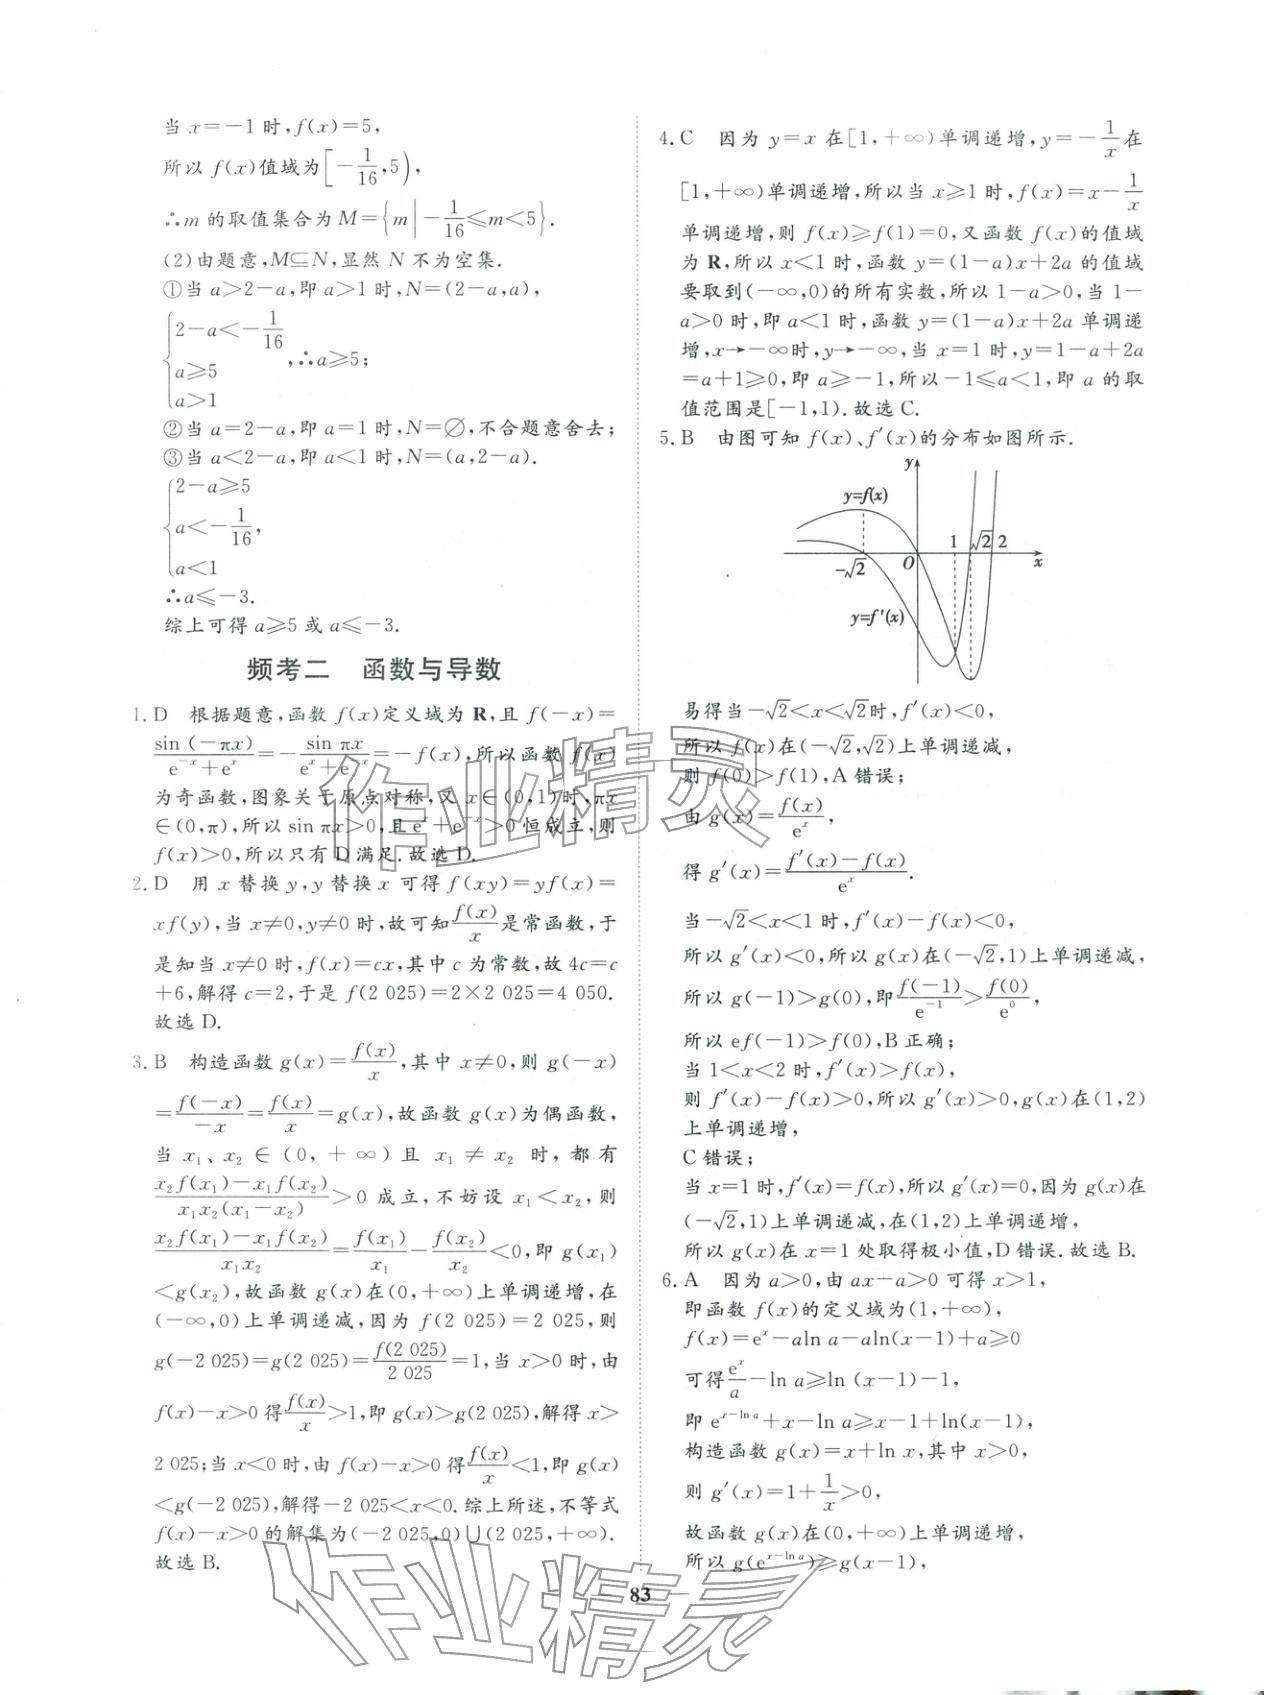 当 x=-1 时,f(x)=5,
所以 f(x)值域为[-1/16,5),
∴m 的取值集合为 M={m|-1/16≤m<5}.
(2)由题意,M⊆N,显然 N 不为空集.
①当 a>2-a,即 a>1 时,N=(2-a,a),
{2-a<-1/16
a≥5
a>1 ,∴a≥5;
②当 a=2-a,即 a=1 时,N=∅,不合题意舍去;
③当 a<2-a,即 a<1 时,N=(a,2-a).
{2-a≥5
a<-1/16,
a<1
∴a≤-3.
综上可得 a≥5 或 a≤-3.
频考二 函数与导数
1.D 根据题意,函数 f(x)定义域为 R,且 f(-x)=
sin(-πx)/(e^-x+e^x)=-sin πx/(e^x+e^-x)=-f(x),所以函数 f(x)
为奇函数,图象关于原点对称,又 x∈(0,1)时,πx
∈(0,π),所以 sin πx>0,且 e^x+e^-x>0 恒成立,则
f(x)>0,所以只有 D 满足.故选 D.
2.D 用 x 替换 y,y 替换 x 可得 f(xy)=yf(x)=
xf(y),当 x≠0,y≠0 时,故可知 f(x)/x 是常函数,于
是知当 x≠0 时,f(x)=cx,其中 c 为常数,故 4c=c
+6,解得 c=2,于是 f(2 025)=2×2 025=4 050.
故选 D.
3.B 构造函数 g(x)=f(x)/x,其中 x≠0,则 g(-x)
=f(-x)/-x=f(x)/x=g(x),故函数 g(x)为偶函数,
当 x₁、x₂∈(0,+∞)且 x₁≠x₂ 时,都有
(x₂f(x₁)-x₁f(x₂))/(x₁x₂(x₁-x₂))>0 成立,不妨设 x₁<x₂,则
(x₂f(x₁)-x₁f(x₂))/(x₁x₂)=f(x₁)/x₁-f(x₂)/x₂<0,即 g(x₁)
<g(x₂),故函数 g(x)在(0,+∞)上单调递增,在
(-∞,0)上单调递减,因为 f(2 025)=2 025,则
g(-2 025)=g(2 025)=f(2 025)/2 025=1,当 x>0 时,由
f(x)-x>0 得 f(x)/x>1,即 g(x)>g(2 025),解得 x>
2 025;当 x<0 时,由 f(x)-x>0 得 f(x)/x<1,即 g(x)
<g(-2 025),解得-2 025<x<0.综上所述,不等式
f(x)-x>0 的解集为(-2 025,0)∪(2 025,+∞).
故选 B.
4.C 因为 y=x 在[1,+∞)单调递增,y=-1/x 在
[1,+∞)单调递增,所以当 x≥1 时,f(x)=x-1/x
单调递增,则 f(x)≥f(1)=0,又函数 f(x)的值域
为 R,所以 x<1 时,函数 y=(1-a)x+2a 的值域
要取到(-∞,0)的所有实数,所以 1-a>0,当 1-
a>0 时,即 a<1 时,函数 y=(1-a)x+2a 单调递
增,x→-∞时,y→-∞,当 x=1 时,y=1-a+2a
=a+1≥0,即 a≥-1,所以-1≤a<1,即 a 的取
值范围是[-1,1).故选 C.
5.B 由图可知 f(x)、f′(x)的分布如图所示.
y
y=f(x)
1 √2 2
-√2 O x
y=f′(x)
易得当-√2<x<√2时,f′(x)<0,
所以 f(x)在(-√2,√2)上单调递减,
则 f(0)>f(1),A 错误;
由 g(x)=f(x)/e^x,
得 g′(x)=(f′(x)-f(x))/e^x.
当-√2<x<1 时,f′(x)-f(x)<0,
所以 g′(x)<0,所以 g(x)在(-√2,1)上单调递减,
所以 g(-1)>g(0),即 f(-1)/e^-1>f(0)/e^0,
所以 ef(-1)>f(0),B 正确;
当 1<x<2 时,f′(x)>f(x),
则 f′(x)-f(x)>0,所以 g′(x)>0,g(x)在(1,2)
上单调递增,
C 错误;
当 x=1 时,f′(x)=f(x),所以 g′(x)=0,因为 g(x)在
(-√2,1)上单调递减,在(1,2)上单调递增,
所以 g(x)在 x=1 处取得极小值,D 错误.故选 B.
6.A 因为 a>0,由 ax-a>0 可得 x>1,
即函数 f(x)的定义域为(1,+∞),
f(x)=e^x-aln a-aln(x-1)+a≥0
可得 e^x/a-ln a≥ln (x-1)-1,
即 e^(x-ln a)+x-ln a≥x-1+ln(x-1),
构造函数 g(x)=x+ln x,其中 x>0,
则 g′(x)=1+1/x>0,
故函数 g(x)在(0,+∞)上单调递增,
所以 g(e^(x-ln a))≥g(x-1),
83
作业精灵
作业精灵